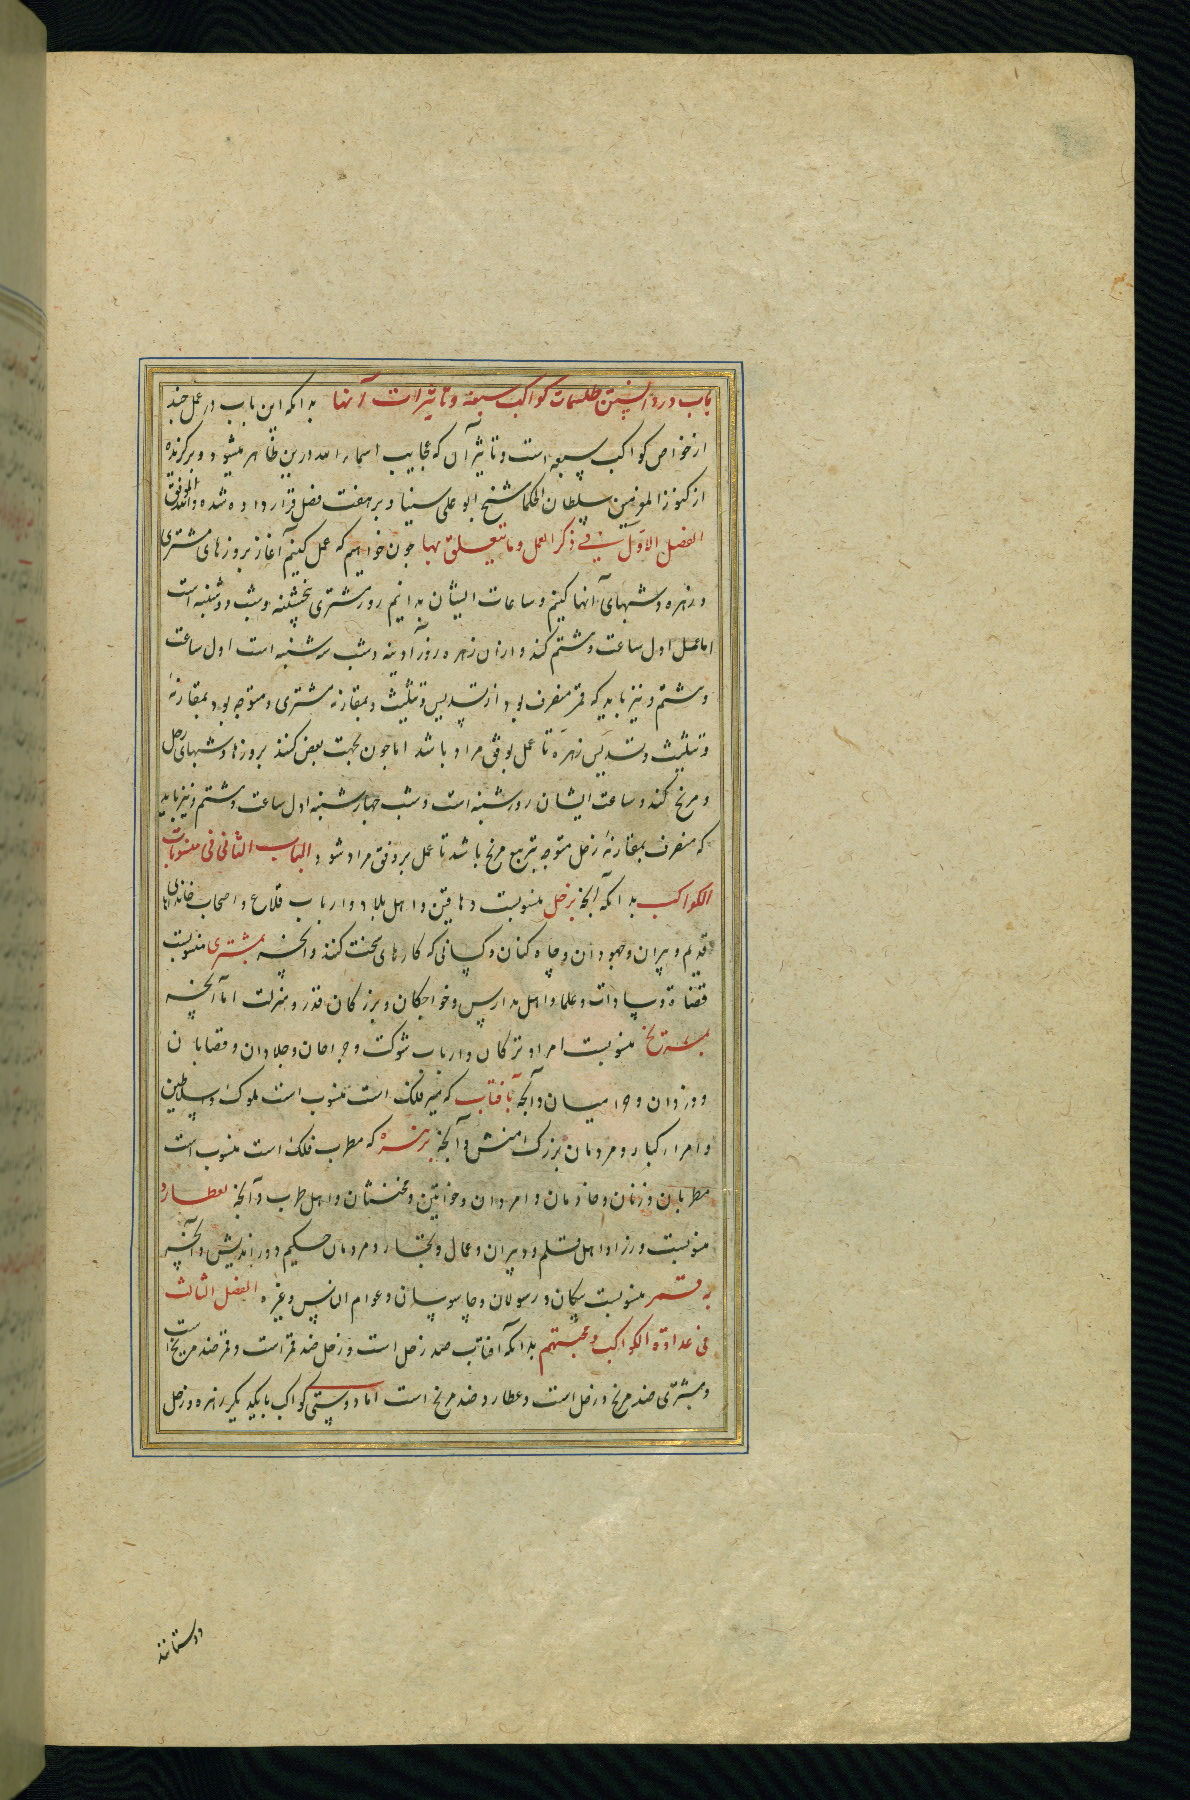 باب در دانستن طلسمات کواکب سبعه و تاثیرات آنها بدانکه این باب در عمل چند
از خواص کواکب سبعه است و تاثیر آن که عجایب اسماء الله درین ظاهر میشود و برگزیده
از کنوز المغرمین سلطان الحکما شیخ ابو علی سینا و بر هفت فصل قرار داده شده والله الموفق
الفصل الاول فی ذکر العمل وما یتعلق بها چون خواهیم که عمل کنیم آغاز بروزهای مشتری
و زهره و شبهای آنها کنیم و ساعات ایشان بدانیم روز مشتری پنجشنبه و شب دوشنبه است
اما عمل اول ساعت و هشتم کند و ازان زهره روز آدینه و شب سه شنبه است اول ساعت
و هشتم و نیز باید که قمر منصرف بود از تسدیس و تثلیث و بمقارنه مشتری و متوجه بود بمقارنهٔ
و تثلیث و تسدیس زهره تا عمل بوفق مراد باشد اما چون بجهت بغض کنند بروزها و شبهای زحل
و مریخ کند و ساعت ایشان روز شنبه است و شب چهارشنبه اول ساعت و هشتم و نیز باید
که منصرف بمقارنهٔ زحل متوجه بتربیع مریخ باشد تا عمل بر وفق مراد شود الباب الثانی فی منسوبات
الکواکب بدانکه آنچه بزحل منسوبست دهاقین و اهل بلاد و ارباب قلاع و اصحاب خاندانهای
قدیم و پیران و جهودان و چاه کنان و کسانی که کارهای سخت کنند و آنچه بمشتری منسوبست
قضاة و سادات و علما و اهل مدارس و خواجگان و بزرگان قدر و منزلت اما آنچه
بمریخ منسوبست امرا و ترکان و ارباب شوکت و جراحان و جلادان و قصابان
و دزدان و حرامیان و آنچه بآفتاب که نیر فلک است منسوب است ملوک و سلاطین
و امراء کبار و مردمان بزرک منش و آنچه بزهره که مطرب فلک است منسوب است
مطربان و زنان و خادمان و امردان و خواتین و مخنثان و اهل طرب و آنچه بعطارد
منسوبست وزرا و اهل قلم و دبیران و عمال و تجار و مردمان حکیم و دوراندیش و آنچه
به قمر منسوبست پیکان و رسولان و جاسوسان و عوام الناس و غیره الفصل الثالث
فی عداوة الکواکب و محبتهم بدانکه آفتاب ضد زحل است و زحل ضد قمر است و قمر ضد مریخ است
و مشتری ضد مریخ و زحل است و عطارد ضد مریخ است اما دوستی کواکب با یکدیگر زهره و زحل
دوستانند